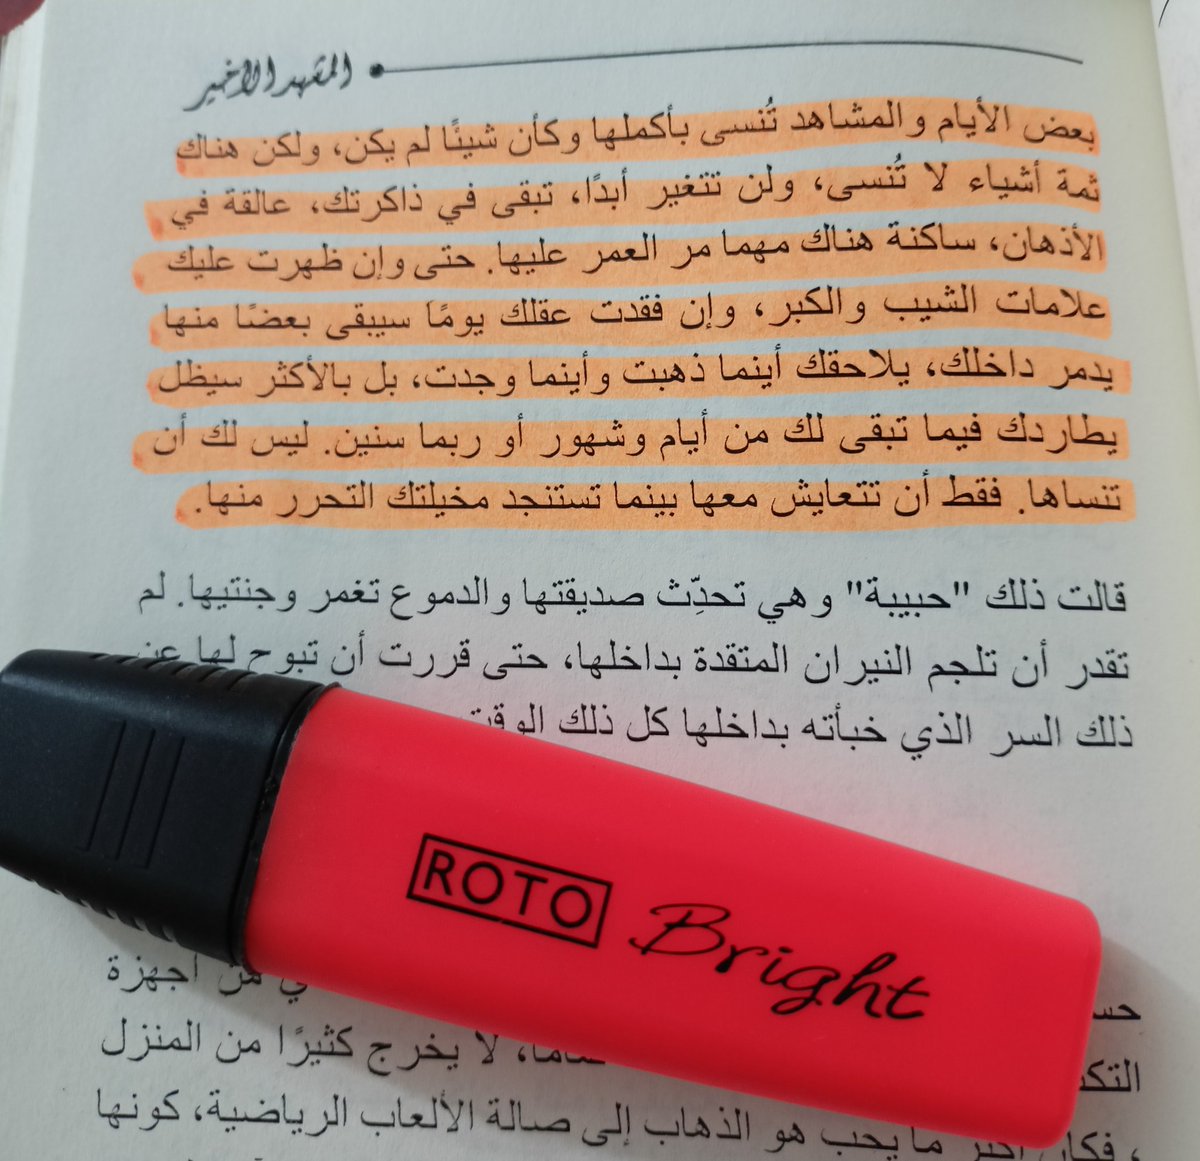 المشهد الأخير
بعض الأيام والمشاهد تُنسى بأكملها وكأن شيئًا لم يكن، ولكن هناك
ثمة أشياء لا تُنسى، ولن تتغير أبدًا، تبقى في ذاكرتك، عالقة في
الأذهان، ساكنة هناك مهما مر العمر عليها. حتى وإن ظهرت عليك
علامات الشيب والكبر، وإن فقدت عقلك يومًا سيبقى بعضًا منها
يدمر داخلك، يلاحقك أينما ذهبت وأينما وجدت، بل بالأكثر سيظل
يطاردك فيما تبقى لك من أيام وشهور أو ربما سنين. ليس لك أن
تنساها. فقط أن تتعايش معها بينما تستنجد مخيلتك التحرر منها.
قالت ذلك "حبيبة" وهي تحدِّث صديقتها والدموع تغمر وجنتيها. لم
تقدر أن تلجم النيران المتقدة بداخلها، حتى قررت أن تبوح لها عن
ذلك السر الذي خبأته بداخلها كل ذلك الوقت
ROTO Bright
من أجهزة
لا يخرج كثيرًا من المنزل
، فكان أكثر ما يحب هو الذهاب إلى صالة الألعاب الرياضية، كونها